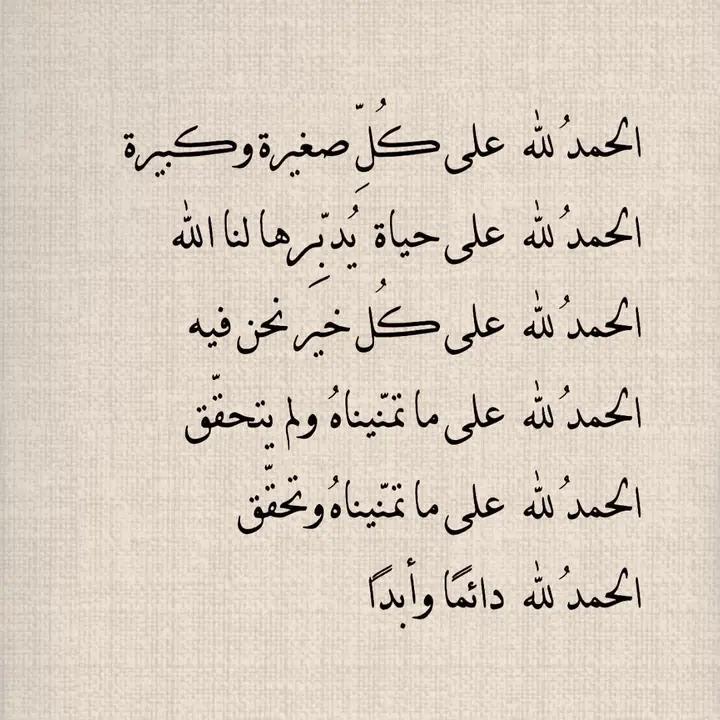 الحمدُ لله على كُلِّ صغيرة وكبيرة
الحمدُ لله على حياة يُدبِّرها لنا الله
الحمدُ لله على كُل خير نحن فيه
الحمدُ لله على ما تمنّيناهُ ولم يتحقّق
الحمدُ لله على ما تمنّيناهُ وتحقّق
الحمدُ لله دائمًا وأبدًا